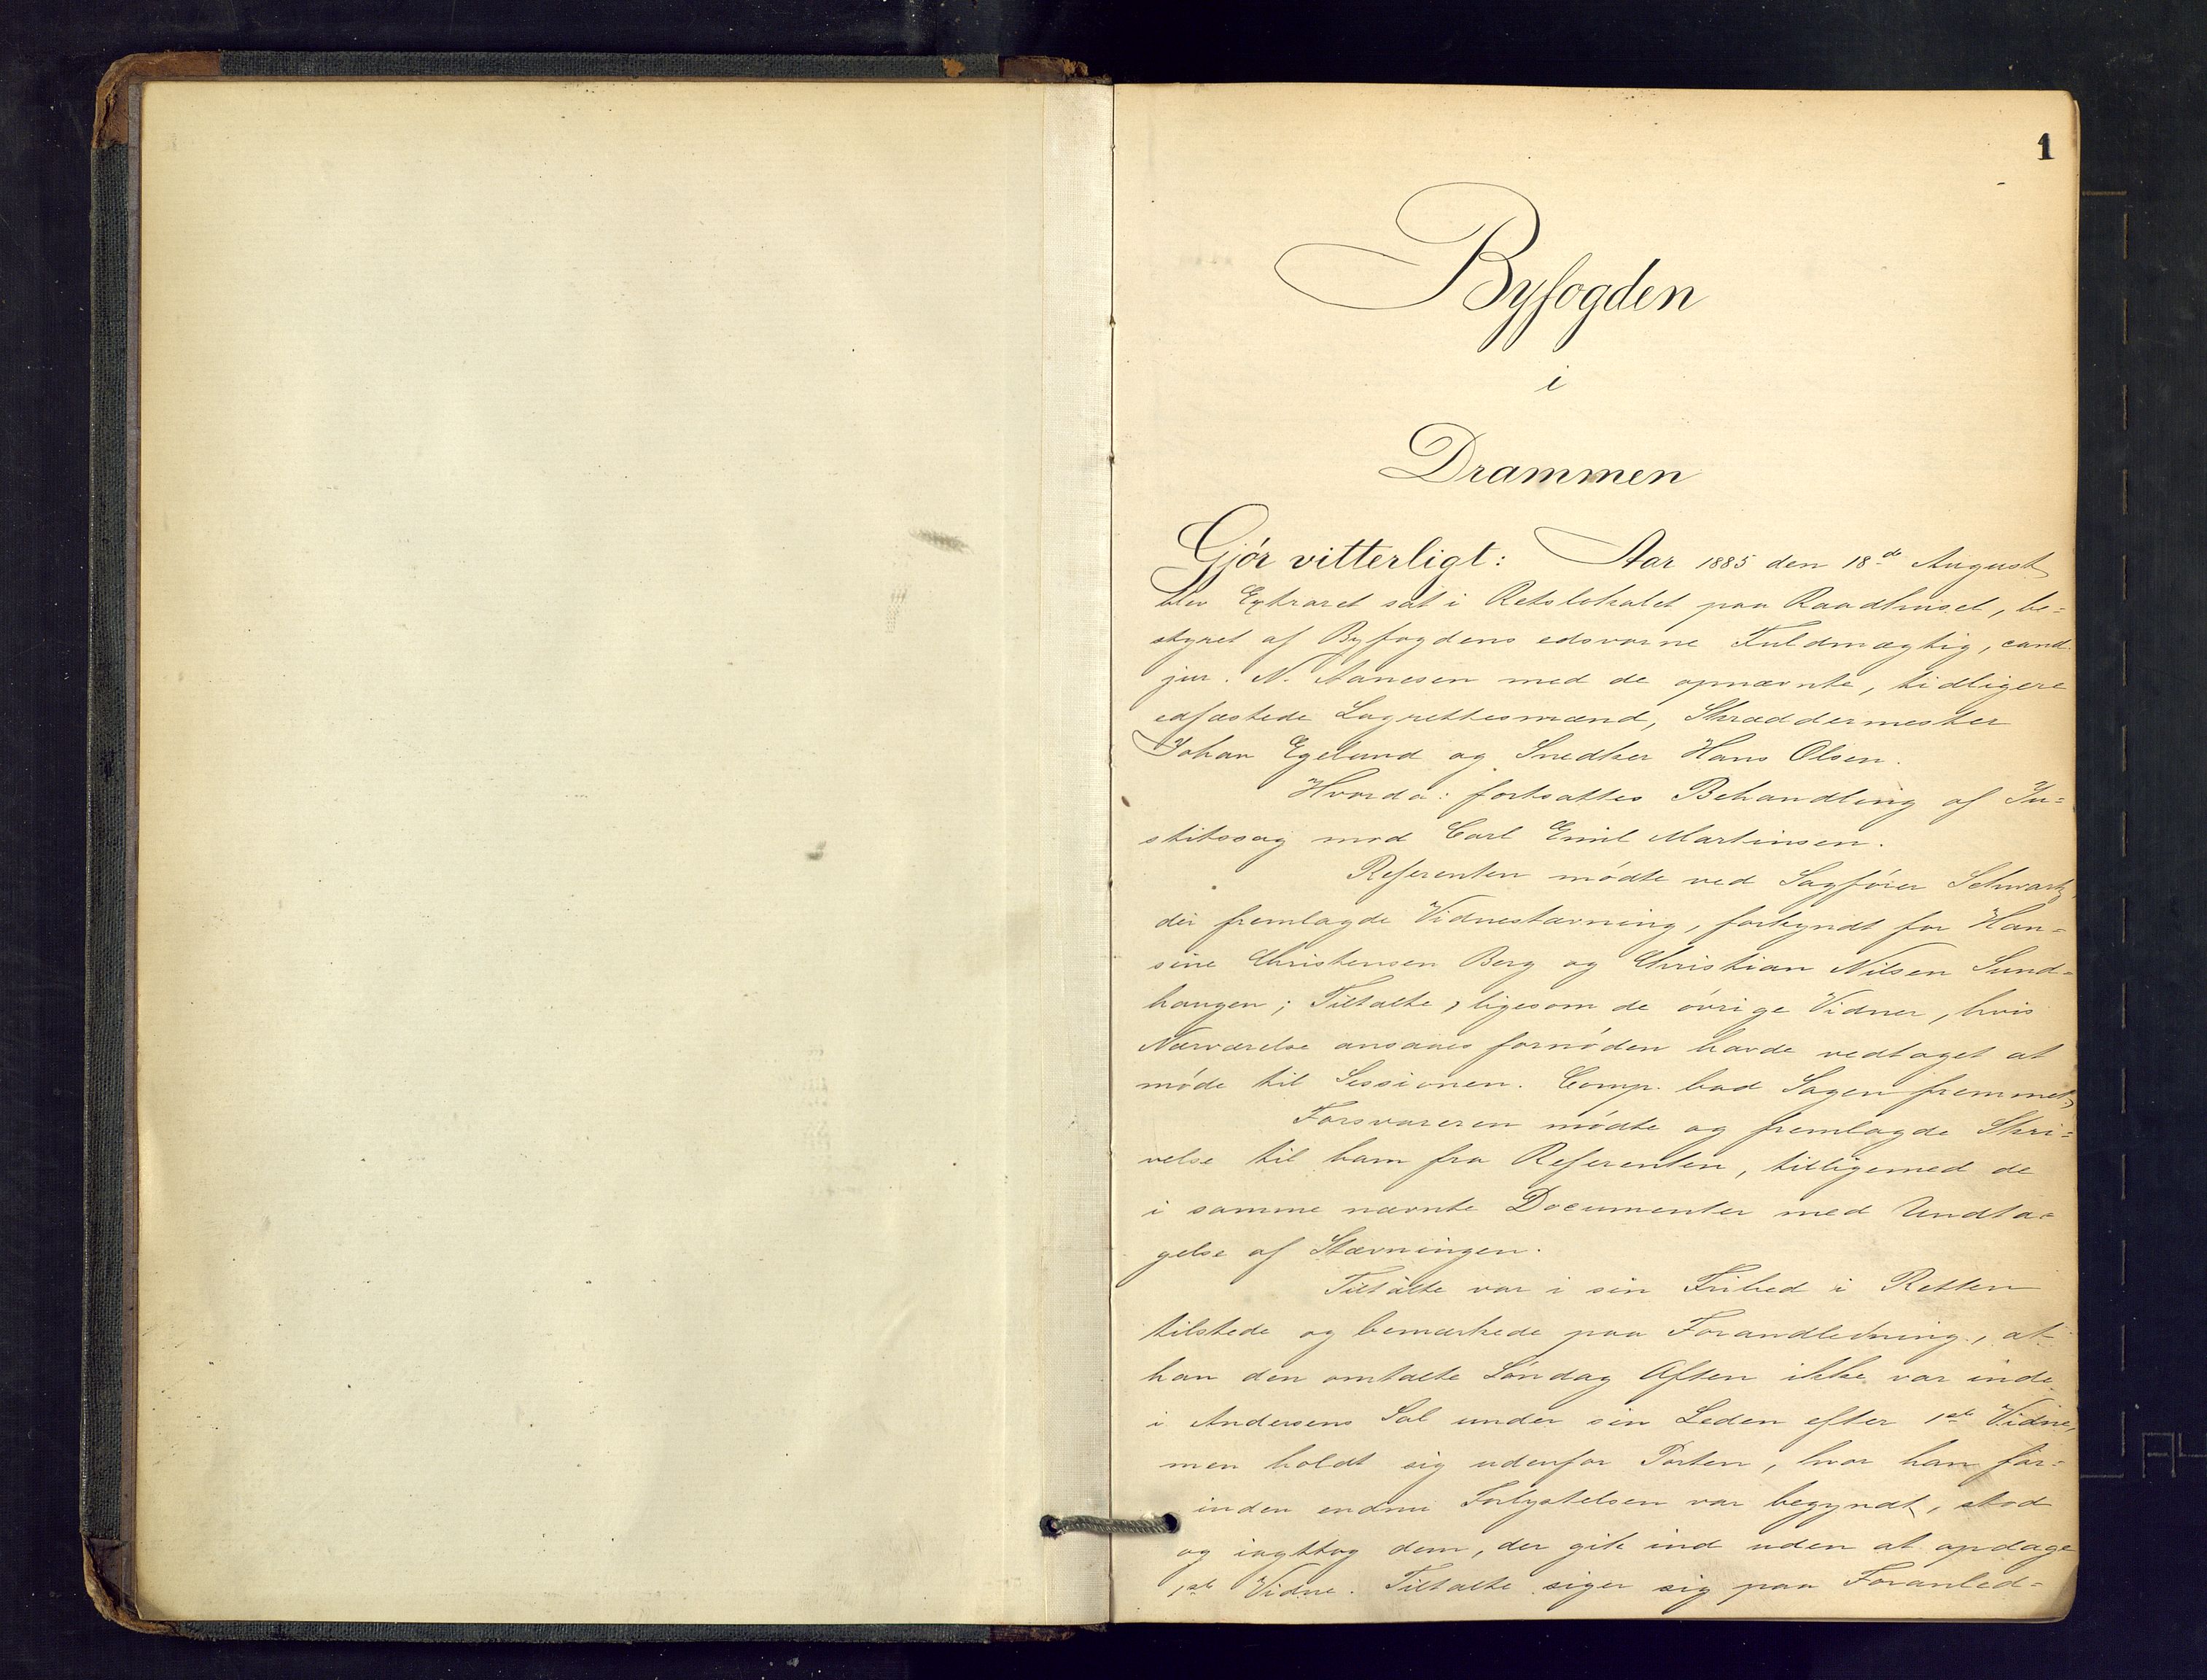 1
Byfogden
i
Drammen
Gjór vitterligt: Aar 1885 den 18de August
blev Extraret sat i Retslokalet paa Raadhuset, be=
styret af Byfogdens edsvorne Fuldmægtig, cand.
jur. N. Aanesen med de opnævnte, tidligere
edfæstede Lagrettesmænd, Skræddermester
Johan Egelund og Snedker Hans Olsen.
Hvorda: fortsattes Behandling af Ju=
stitssag mod Carl Emil Martinsen.
Referenten módte ved Sagfórer Schwartz,
der fremlagde Vidnestævning, forkyndt for Han=
sine Christensen Berg og Christian Nilsen Sund=
haugen; Tiltalte, ligesom de óvrige Vidner, hvis
Nærværelse ansaaes fornóden havde vedtaget at
móde til Sessionen. Comp. bad Sagen fremmet,
Forsvareren módte og fremlagde Skri=
velse til ham fra Referenten, tilligemed de
i samme nævnte Documenter med Undta=
gelse af Stævningen.
Tiltalte var i sin Frihed i Retten
tilstede og bemærkede paa Forandledning, at
han den omtalte Sóndag Aften ikke var inde
i Andersens Sal under sin Leden efter 1ste Vidne,
men holdt sig udenfor Porten, hvor han fór=
inden endnu Forlystelsen var begyndt, stod
og iagttog dem, der gik ind uden at opdage
1ste Vidne. Tiltalte siger sig paa Foranled=